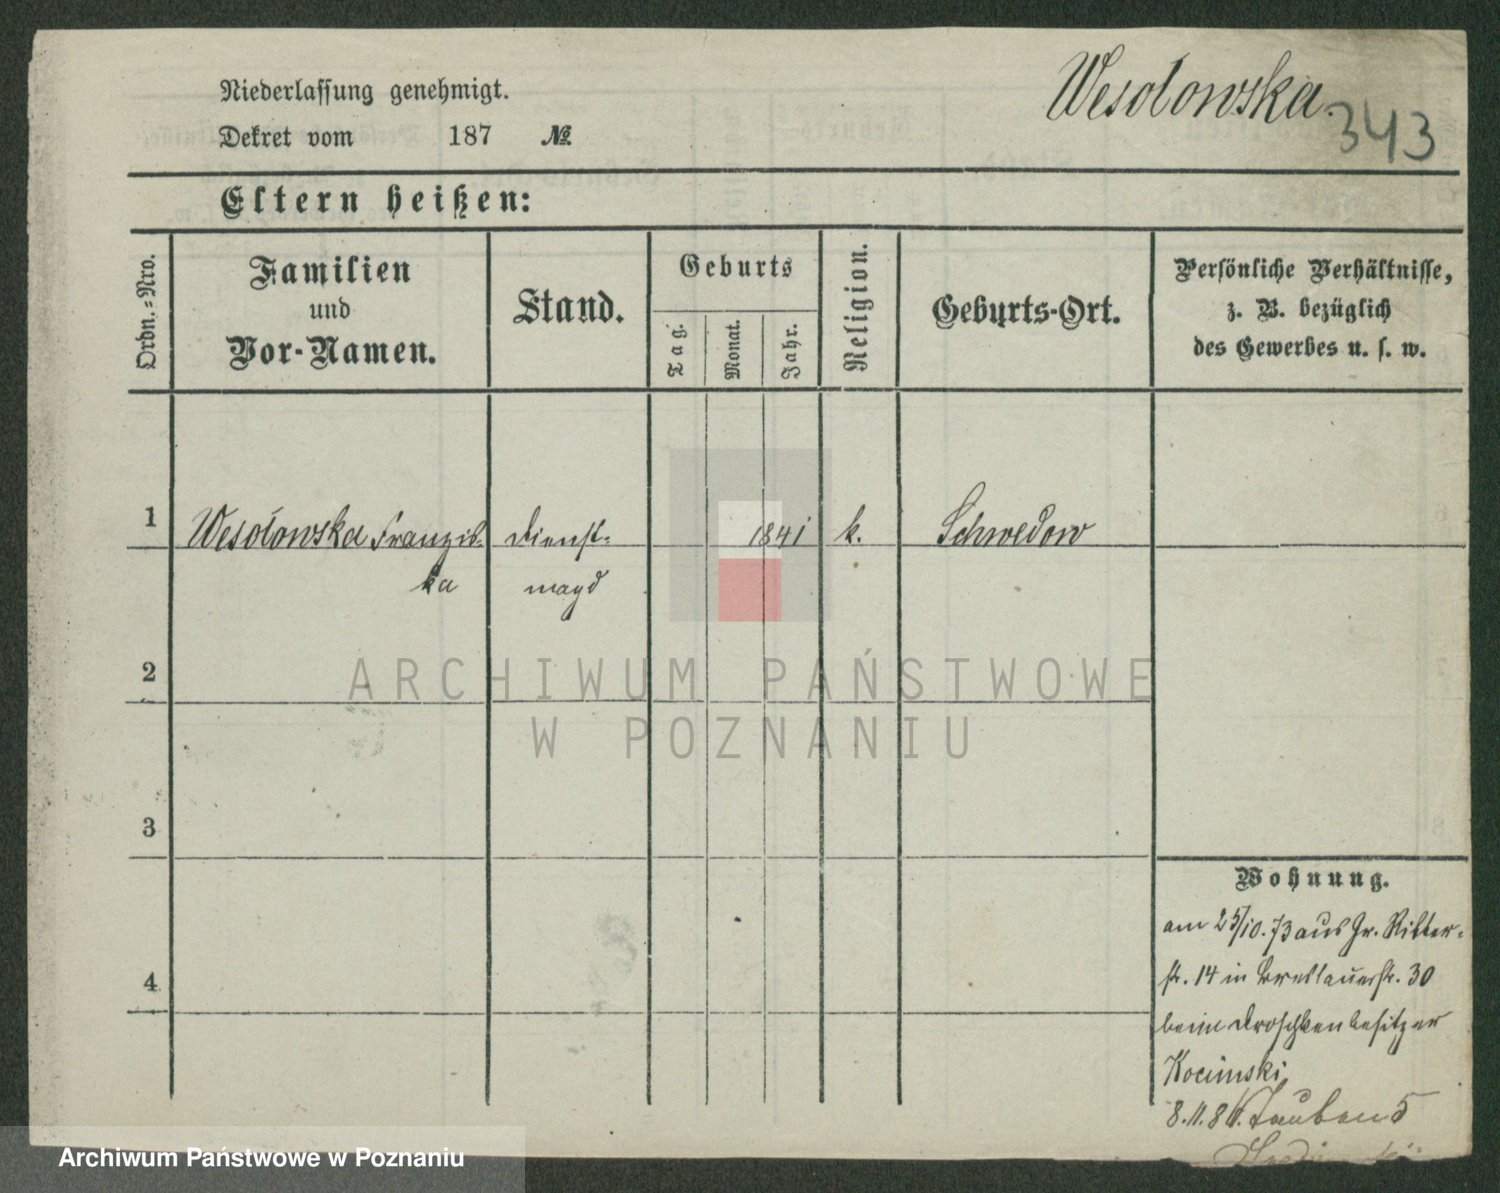 Wesołowska.
343
Niederlassung genehmigt.
Dekret vom 187 №
Eltern heißen:
Ordn.-Nro.
Familien
und
Vor-Namen.
Stand.
Geburts
Tag.
Monat.
Jahr.
Religion.
Geburts-Ort.
Persönliche Verhältnisse,
z. B. bezüglich
des Gewerbes u. s. w.
1 Wesołowska Franzis- Dienst- 1841 k. Schwedow
ka magd
2
3
4
Wohnung.
am 25/10.73 aus Gr. Ritter-
str. 14 in Breslauerstr. 30
beim Droschkenbesitzer
Kocinski
8.11.81. Tauben 5
ARCHIWUM PAŃSTWOWE
W POZNANIU
Archiwum Państwowe w Poznaniu